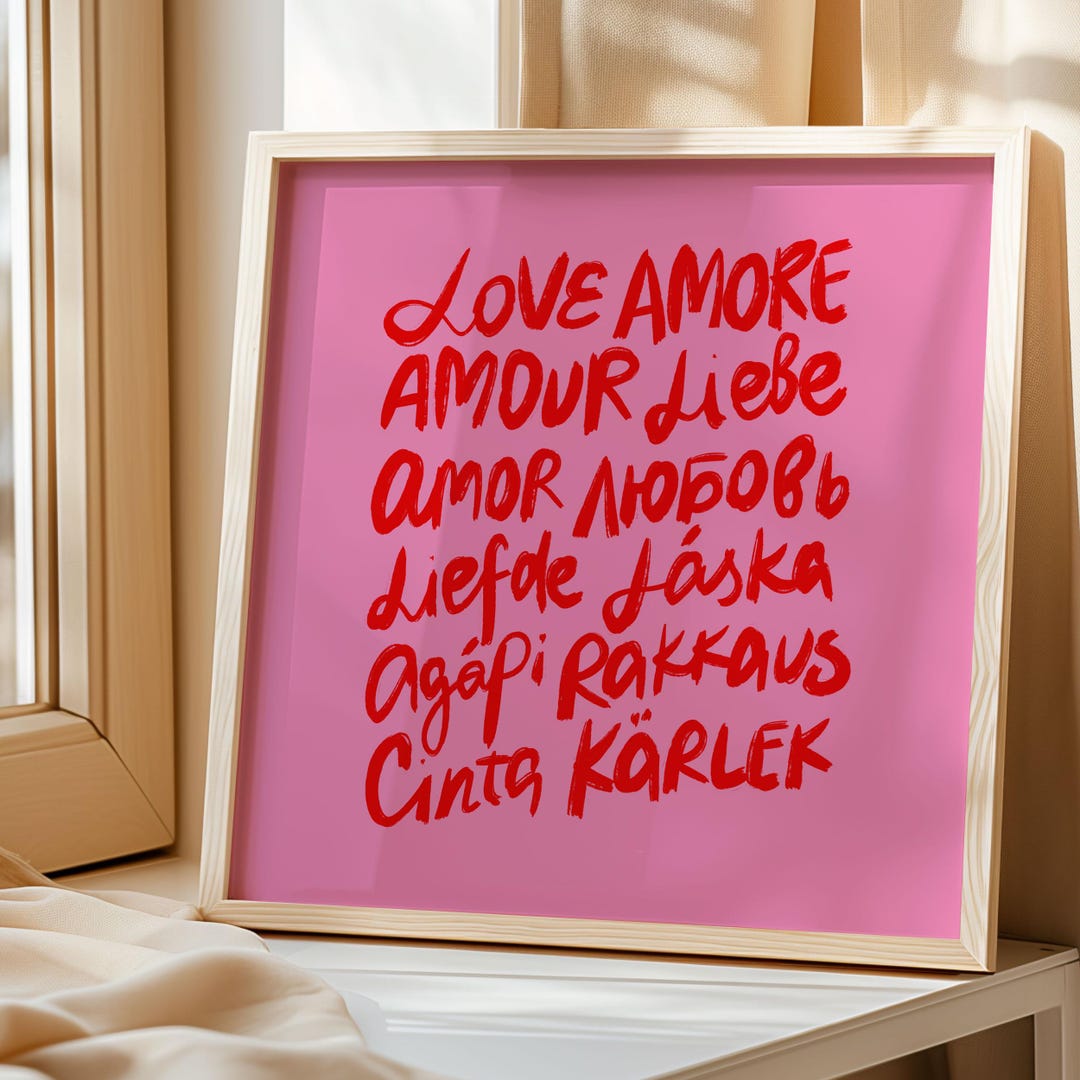 Love AMORE
AMOUR Liebe
AMOR ЛЮБОВЬ
Liefde Láska
Agápi Rakkaus
Cinta KÄRLEK